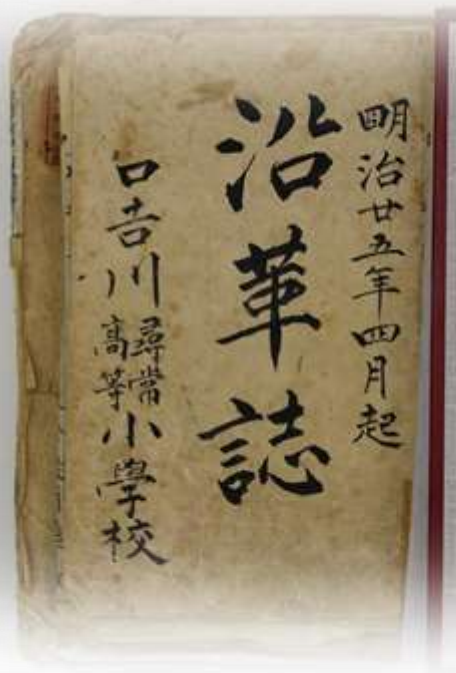 明治廿五年四月起
沿革誌
口吉川尋常高等小學校